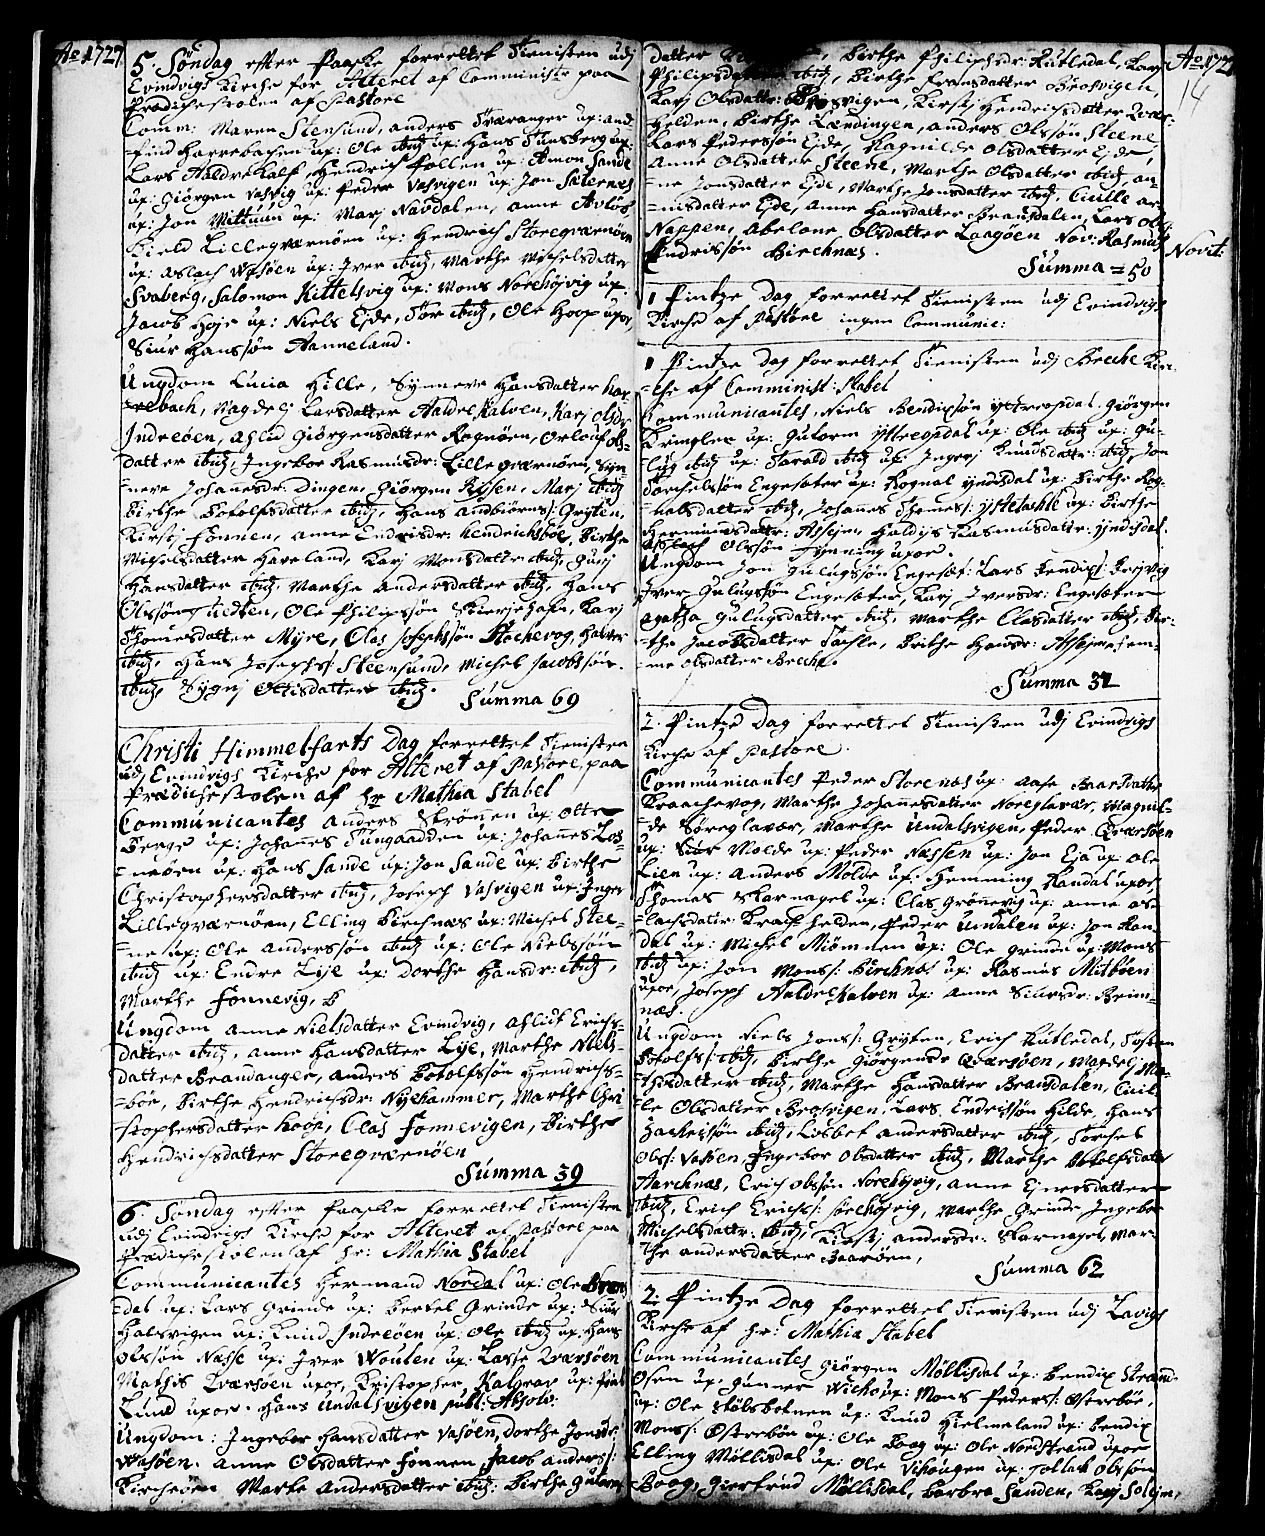 Ao 1727.
5. Søndag efter Paaske forrettet Tienisten udj
Evindvigs Kirche for Alteret af Comministr paa
Prædichestolen af Pastore
Comm: Maren Stensund, anders Tværanger up: and
=find Harrebachen up: Ole ibid: up: Hans Tunsberg up:
Lars Haldrekalf, Hendrich Follen up: Amon Sande
up: Giørgen Vasvig up: Peder Vasvigen up: Jon Sæternes
up: Jon Mittuun up: Marj Navdalen, anne Avløs
Kield Lillegværnøen up: Hendrich Storegværnøen
up: aslach Wasøen up: Iver ibid, Marthe Michelsdatter
Svaberg, Salomon Kittelsvig up: Mons Norehøjvig up:
Jacob Høje up: Niels Ejde, Tor ibid, Ole Hoop upor
Siur Hanssøn Hanneland.
Ungdom Lucia Hille, Synneve Hansdatter har=
=rebach, Magdelj Larsdatter Haldrekalven, Karj olsdr
Indreøen, aslid Giørgensdatter Rognøen, Orlouf ols=
datter ibid, Ingebor Rasmusdr: Lillegværnøen, Syn=
=neve Johannesdr: Dingen, Giørgen Risen, Marj ibid
Birthe Botolfsdatter ibid, Hans andbiørns: Grÿten,
Kirstj Fonnen, anne Endresdr: Hendrichsbøe, Birthe
Michelsdatter Haveland, Karj Monsdatter ibid, Gurj
Hansdatter ibid, Marthe Andersdatter ibid, Hans
Olssøn, Ole Philipsøn Skierjehafn, Karj
Thomesdatter Myre, Olas Josephssøn Stochevog, Halver
ibid, Hans Josephs: Steensund, Michel Jacobssøn
ibid, Sygnj Ottisdatter ibid.
Summa 69
Christi Himmelfarts Dag forrettet Tienisten
udj Evindvigs Kirche for Alteret af Pastore, paa
Prædichestolen af hr Mathia Stabel
Communicantes anders Skrønen up: Otte
Berge up: Johannes Tungaadden up: Johannes Los=
=neøen up: Hans Sande up: Jon Sande up: Birthe
Christophersdatter ibid, Joseph Vasvigen up: Inger
Lillegværnøen, Elling Birchnæs up: Michel Stee=
=ne up: Ole anderssøn ibid up: Ole Nielssøn
ibid up: Endre Lije up: dorthe Hansdr: ibid,
Marthe Fonnevig,
Ungdom anne Nielsdatter Evindvig, aslidt Erichs=
datter ibid, anne Hansdatter Lije, Marthe Niels=
datter Brandanger, anders Botolfssøn Hendrichs=
=bøe, Birthe Hendrichsdr: Nyehammer, Marthe Chri=
=stophersdatter Hoop, Clas Fonnevigen, Birthe
Hendrichsdatter Storegværnøen
Summa 39
6. Søndag efter Paaske forrettet Tienisten
udj Evindvigs Kirche for Alteret af Pastore paa
Prædichestolen af hr: Mathia Stabel
Communicantes Hermand Nordal up: Ole
=dal up: Lars Grinde up: Bertel Grinde up: Siur
Halsvigen up: Knud Indreøen up: Ole ibid up: Hans
olssøn Næsse up: Iver Wouten up: Lasse Qværsøen
Mathis Qværsøen upor, Kristopher Kalgrav up:
Lund upor. Hans Undalsvigen publ: Absolv:
Ungdom: Ingebor Hansdatter Vasøen, dorthe Jonsdr:
Wasøen. anne Olsdatter Fonnen, Jacob anders:
Kircheøen Marte andersdatter ibid: Birthe Gulorms
datter, Birthe Philipsdr: Rutledal, Karj
Philipsdatter ibid, Birthe Fransdatter Brosvigen,
Karj Olsdatter: Brosvigen, Kirstj Hendrichsdatter Qvær=
Helden, Birthe Lændingen, anders Olssøn Steene
Lars Pederssøn Ejde, Magnilde Olsdatter Ejde,
Anne Olsdatter Steene, Marthe Olsdatter ibid, an=
=ne Jonsdatter Ejde, Marthe Jonsdatter ibid, Cicille ar=
=nisdatter Ejde, anne Hansdatter Brausdalen, Lars ols:
Nappen, Abelone Olsdatter Laagøen Nov: Rasmus
Endrissøn Birchnæs.
Summa =50
1 Pintze Dag forrettet Tienisten udj Evindvigs
Kirche af Pastore ingen Communic:
1 Pintze Dag forrettet Tienisten udj Breche Kir=
=che af Comminist: Stabel
Communicantes, Niels Bendixsøn Ytreopdal, Giørgen
Kringler up: Gutorm Yttreopdal up: Ole ibid up: Gu=
=lug ibid up: Harald ibid up: Ingrj Knudsdatter: ibid, Jon
Torchelssøn Engesæter up: Rognal Yndesdal up: Birthe Rog=
=nalsdatter ibid, Johannes Thomes: Ystetachle up: Birthe
Hermundsdatter: Assjen, Haldis Rasmusdatter: Yndesdal
Aslach Olssøn Fynning upor.
Ungdom Jon Gulugssøn Engesæt: Lars Bendix: Borjvig
Iver Gulugssøn Engesæter, Karj Iversdr: Engesæter
agatha Gulugsdatter ibid, Marthe Clasdatter ibid, Bir=
=the Jacobsdatter Tachle, Brithe Hansdr: Assjen, Jem=
=ne olsdatter Breche.
Summa 31
2. Pintze Dag forrettet Tienisten udj Evindvigs
Kirche af Pastore.
Communicantes Peder Storenæs up: aase
Kraachevog, Marthe Johannesdatter Noreglavær, Magnil=
=de Søreglavær, Marthe Undalsvigen, Peder Qværsøen
up: Siur Molde up: Peder Næssen up: Jon Eja up Ole
Lien up: anders Molde up: Hemming Randal upor,
Thomas Skarnagel up: Clas Grønevig up: anne as=
=lachsdatr: Krachhelden, Peder Undalen up: Jon Ran=
dal up: Michel Miømnen up: Ole grinde up: Mons
ibid up: Jon Mons: Birchnæs up: Rasmus Mitbøen
upor, Joseph Haldrekalven up: Anne Siursdr: Brim=
næs.
Ungdom Niels Jons: Gryten, Erich Rutledal, Tosten
Botolfs: ibid, Birthe Giørgensdr: Qværsøen, Magdelj Ma=
=thisdatter ibid, Marthe Hansdatter Brausdalen, Cicil=
=le Olsdatter Brosvigen, Lars Endrissøn Hilde, Hans
Zacheissøn ibid, Lisbet andersdatter ibid, Torchel
ols: Vasøen, Ingebor olsdatter ibid, Marthe Botolfsdatr
Aarchnæs, Erich olssøn Norehøjvig, anne Ejnersdatter
ibid, Erich Erichs: sørehøjvig, Marthe Grinde Ingebor
Michelsdatter: ibid, Kirstj andersdr: Skarnagel, Mar=
=the andersdatter Baarøen,
Summa 62
2. Pintze Dag forrettet Tienisten udj Lavigs
Kirche af hr: Mathia Stabel
Communicantes Giørgen Møllisdal up: Bendix Strand
Osen up, gunner Wicho up: Mons Peders: Østerbøe,
up: Ole Stølsbotnen up: Knud Hielmeland up: Bendix
Mons: Østerbøe up: Ole Boeg up: Ole Nordstrand upor
Elling Møllisdal up: Ole Visougen up: Tollach olssøn
Boeg, giertrud Möllisdal, barbra Sanden, Karj Solhjem,
Ao 172
14
Novit: